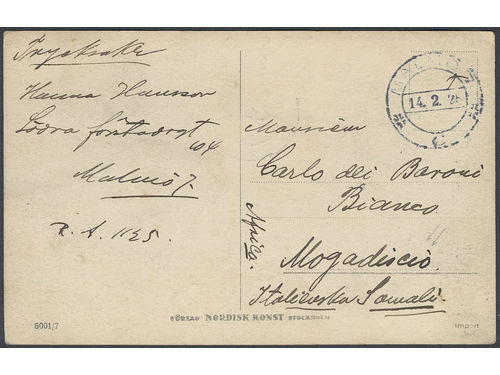 Trycksaker
Hanna Hansson
Södra förstadsgt
104
Malmö 7.
R. A. 1125.
MALMÖ
14. 2. 2
Monsieur
Carlo dei Baroni
Bianco
Mogadiscio
Italienska Somali.
Africa.
FÖRLAG NORDISK KONST STOCKHOLM
5001/7
Import